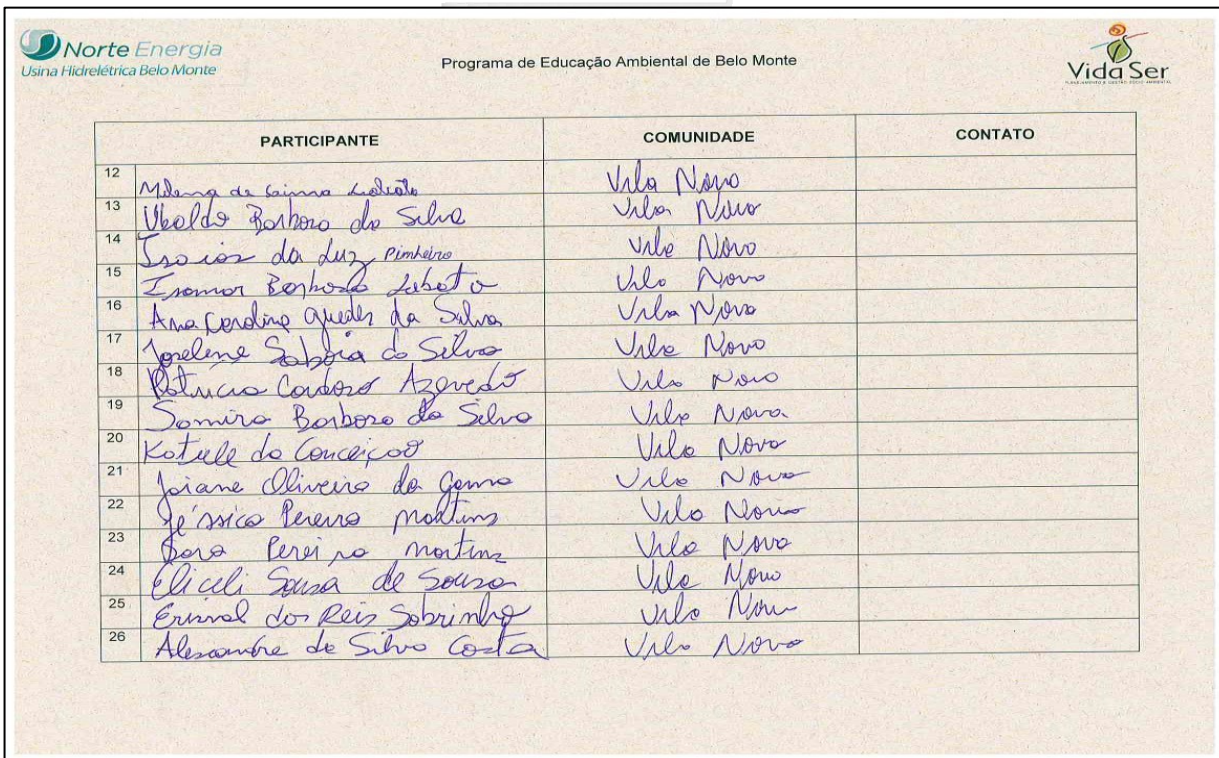 Norte Energia
Usina Hidrelétrica Belo Monte
Programa de Educação Ambiental de Belo Monte
Vida Ser
PARTICIPANTE COMUNIDADE CONTATO
12 Milena de Lobato Vila Nova
13 Ubaldo Barbosa da Silva Vila Nova
14 Isaias da Luz Pinheiro Vila Nova
15 Isamar Barbosa Lobato Vila Nova
16 Ana Carolina Guedes da Silva Vila Nova
17 Joselene Saboia da Silva Vila Nova
18 Patrícia Cardoso Azevedo Vila Nova
19 Samira Barbosa da Silva Vila Nova
20 da Conceiçao Vila Nova
21 Joiane Oliveira da Gama Vila Nova
22 Jéssica Pereira Martins Vila Nova
23 Pereira Martins Vila Nova
24 Eliceli Sousa de Sousa Vila Nova
25 Erisval dos Reis Sobrinho Vila Nova
26 da Silva Costa Vila Nova